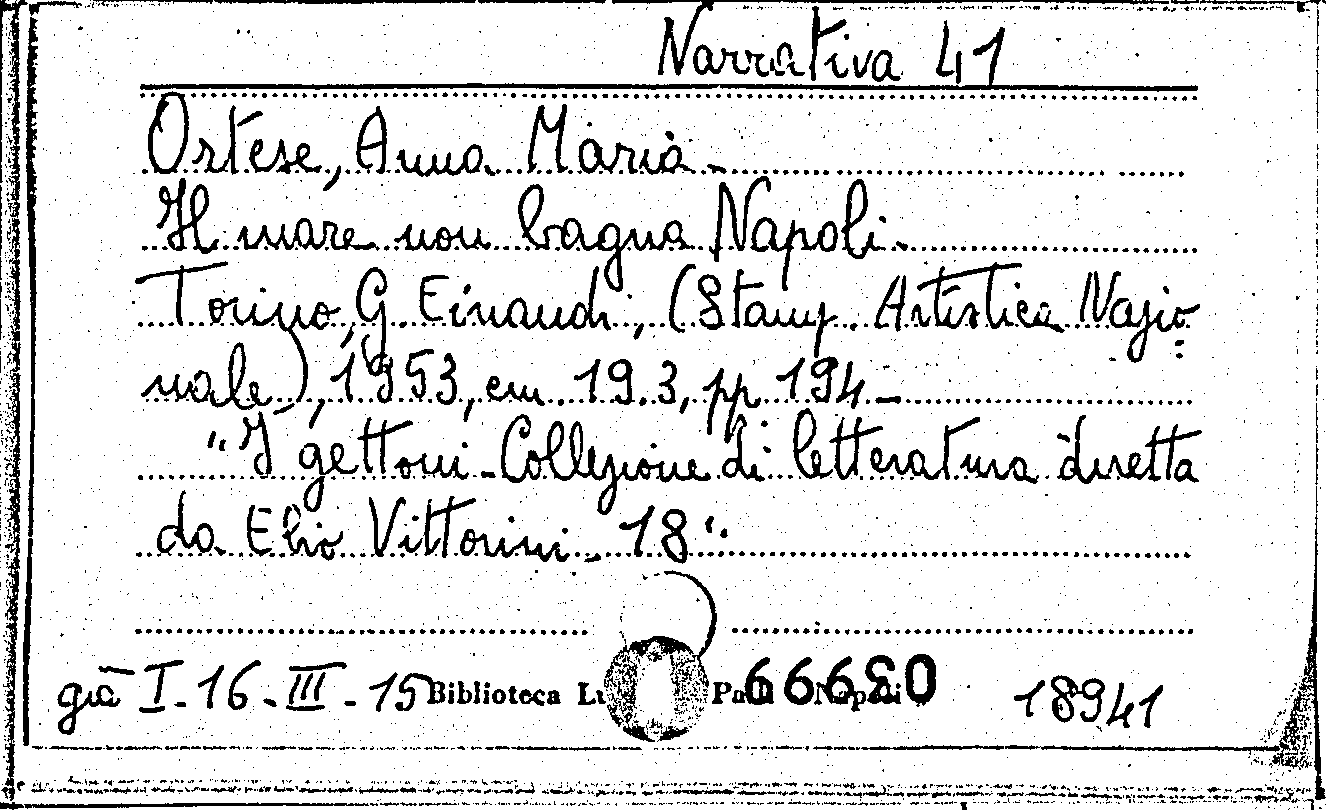 Narrativa 41
Ortese, Anna Maria -
Il mare non bagna Napoli.
Torino, G. Einaudi, (Stamp. Artistica Nazio=
nale), 1953, cm. 19.3, pp. 194 -
"I gettoni - Collezione di letteratura diretta
da Elio Vittorini - 18".
già I - 16 - III - 15 Biblioteca 18941